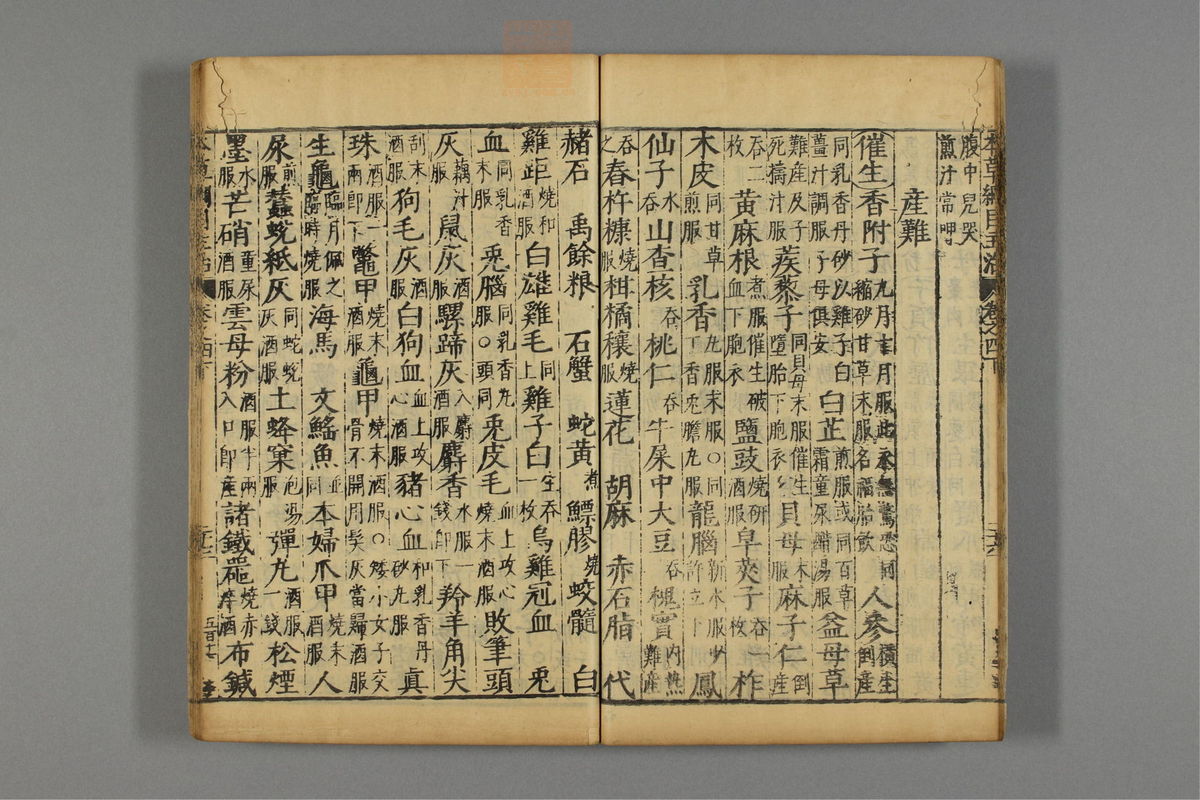 腹中兒哭煎汁常呷
產難
催生 香附子 九月十月服此永無驚恐同縮砂甘草末服名福胎飲 人參 橫生倒產
同乳香丹砂以雞子白薑汁調服子母俱安 白芷 煎服或同百草霜童尿醋湯服 益母草
難產及子死擣汁服 蒺藜子 同貝母末服催生墮胎下胞衣 貝母 末服 麻子仁 倒產
吞二枚 黃麻根 煮服催生破血下胞衣 鹽豉 燒研酒服 皁莢子 吞一枚 柞
木皮 同甘草煎服 乳香 丸服末服○同丁香兎膽丸服 龍腦 新水服少許立下 鳳
仙子 水吞 山查核 吞 桃仁 吞 牛屎中大豆 吞 槐實 內熱難產
吞之 舂杵糠 燒服 柑橘穰 燒服 蓮花 胡麻 赤石脂 代
赭石 禹餘粮 石蟹 蛇黃 煮 鰾膠 燒 蛟髓 白
雞距 燒和酒服 白雄雞毛 同上 雞子白 生吞一枚 烏雞冠血 兎
血 同乳香末服 兎腦 同乳香丸服○頭同 兎皮毛 血上攻心燒末酒服 敗筆頭
灰 藕汁服 鼠灰 酒服 騾蹄灰 入麝酒服 麝香 水服一錢即下 羚羊角尖
刮末酒服 狗毛灰 酒服 白狗血 血上攻心酒服 豬心血 和乳香丹砂丸服 真
珠 酒服一兩即下 鼈甲 燒末酒服 龜甲 燒末酒服○矮小女子交骨不開同髮灰當歸酒服
生龜 臨月佩之臨時燒服 海馬 文鰩魚 並同 本婦爪甲 燒末酒服 人
尿 煎服 蠶蛻紙灰 同蛇蛻灰酒服 土蜂窠 泡湯服 彈丸 酒服一錢 松煙
墨 水服 芒硝 童尿酒服 雲母粉 酒服半兩入口即產 諸鐵器 燒赤淬酒 布鍼